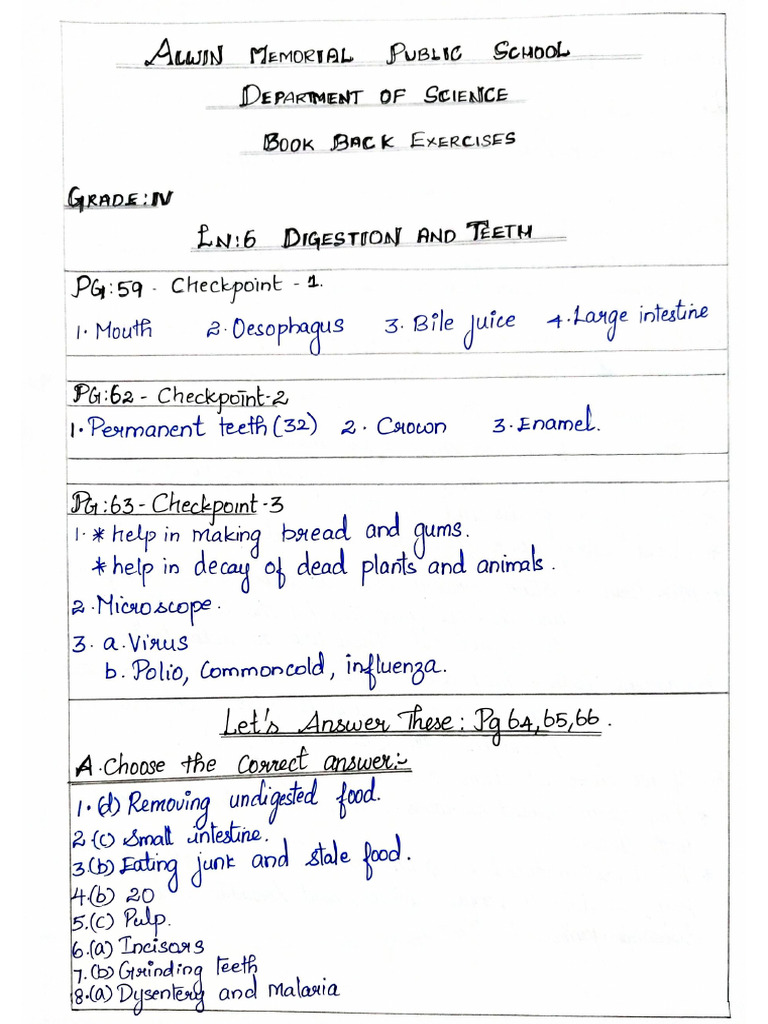 ALWIN MEMORIAL PUBLIC SCHOOL
DEPARTMENT OF SCIENCE
BOOK BACK EXERCISES
GRADE:IV
LN:6 DIGESTION AND TEETH
PG:59 - Checkpoint - 1.
1. Mouth 2. Oesophagus 3. Bile juice 4. Large intestine
PG:62 - Checkpoint-2
1. Permanent teeth (32) 2. Crown 3. Enamel.
Pg:63 - Checkpoint-3
1. * help in making bread and gums.
* help in decay of dead plants and animals.
2. Microscope.
3. a. Virus
b. Polio, Commoncold, influenza.
Let's Answer These: Pg 64,65,66.
A. Choose the correct answer:-
1. (d) Removing undigested food.
2. (c) Small intestine.
3. (b) Eating junk and stale food.
4. (b) 20
5. (c) Pulp.
6. (a) Incisors
7. (b) Grinding teeth
8. (a) Dysentery and malaria